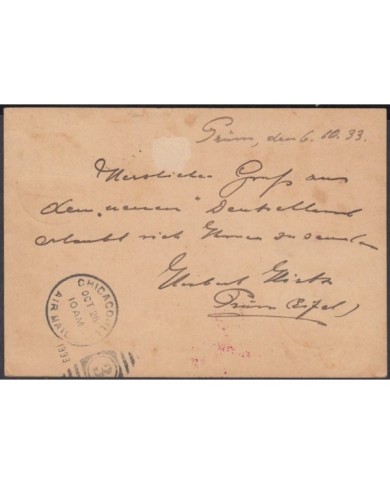 Prüm, den 6.10.33.
Herzlichen Gruß aus
dem „neuen" Deutschland
erlaubt sich Ihnen zu senden
Prüm (Eifel)
CHICAGO, ILL
OCT 26
10 AM
AIR MAIL
1933
3